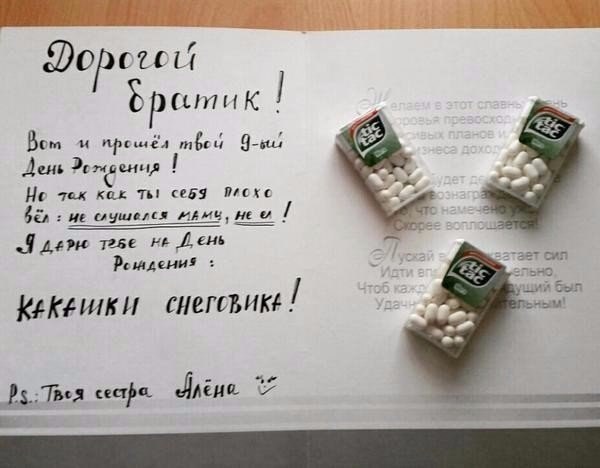 Дорогой
братик!
Вот и прошёл твой 9-ый
День Рождения!
Но так как ты себя плохо
вёл: не слушался маму, не ел!
Я дарю тебе на День
Рождения:
КАКАШКИ СНЕГОВИКА!
P.s.: Твоя сестра Алёна
Желаем в этот славный день
планов и
доход
Будет
что намечено
Скорее воплощается!
Пускай хватает сил
Идти
Чтоб кажд дущий был
Удачн тельным!
tic tac
tic tac
tic tac